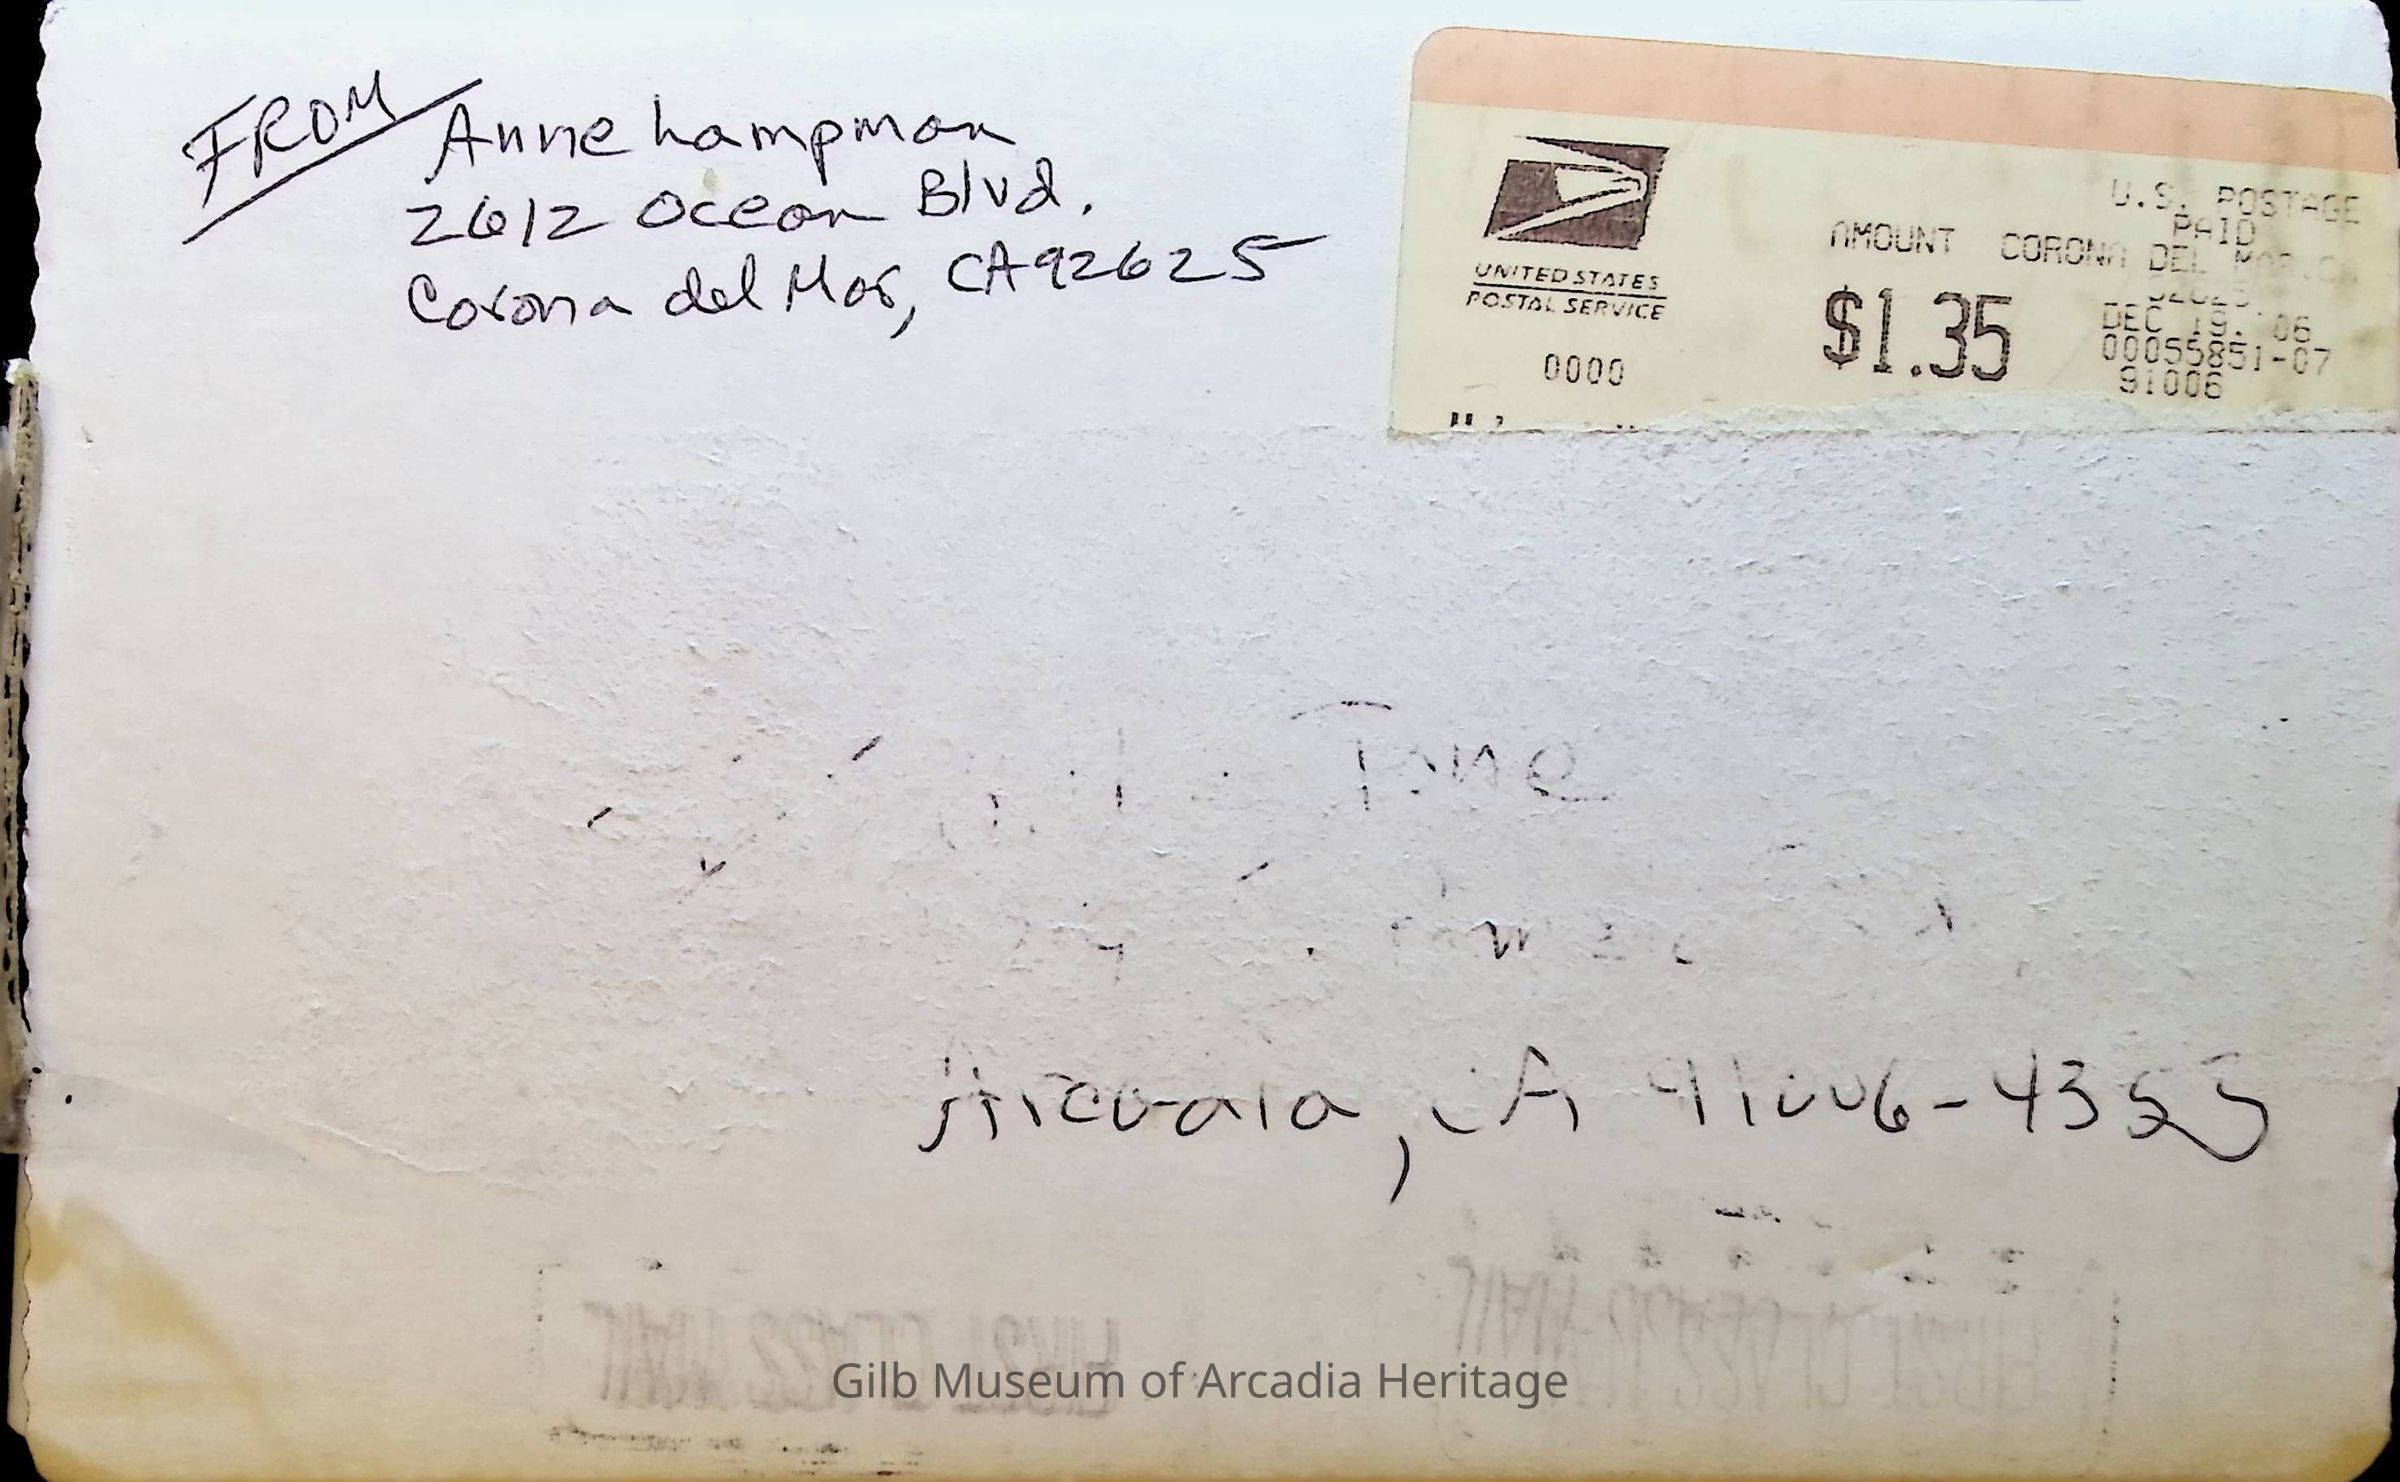 FROM
Anne Lampman
2612 Ocean Blvd.
Corona del Mar, CA 92625
UNITED STATES
POSTAL SERVICE
0000
AMOUNT
$1.35
U.S. POSTAGE
PAID
CORONA DEL MAR, CA
92625
DEC 19, 06
00055851-07
91006
Arcadia, CA 91006-4353
FIRST CLASS MAIL
FIRST CLASS MAIL
Gilb Museum of Arcadia Heritage